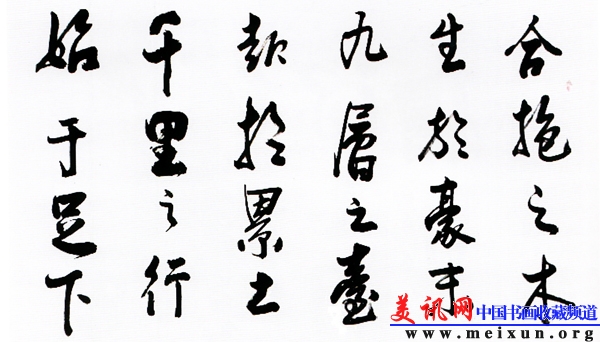 合抱之木
生於豪末
九層之臺
起於累土
千里之行
始于足下
美讯网中国书画收藏频道
www.meixun.org